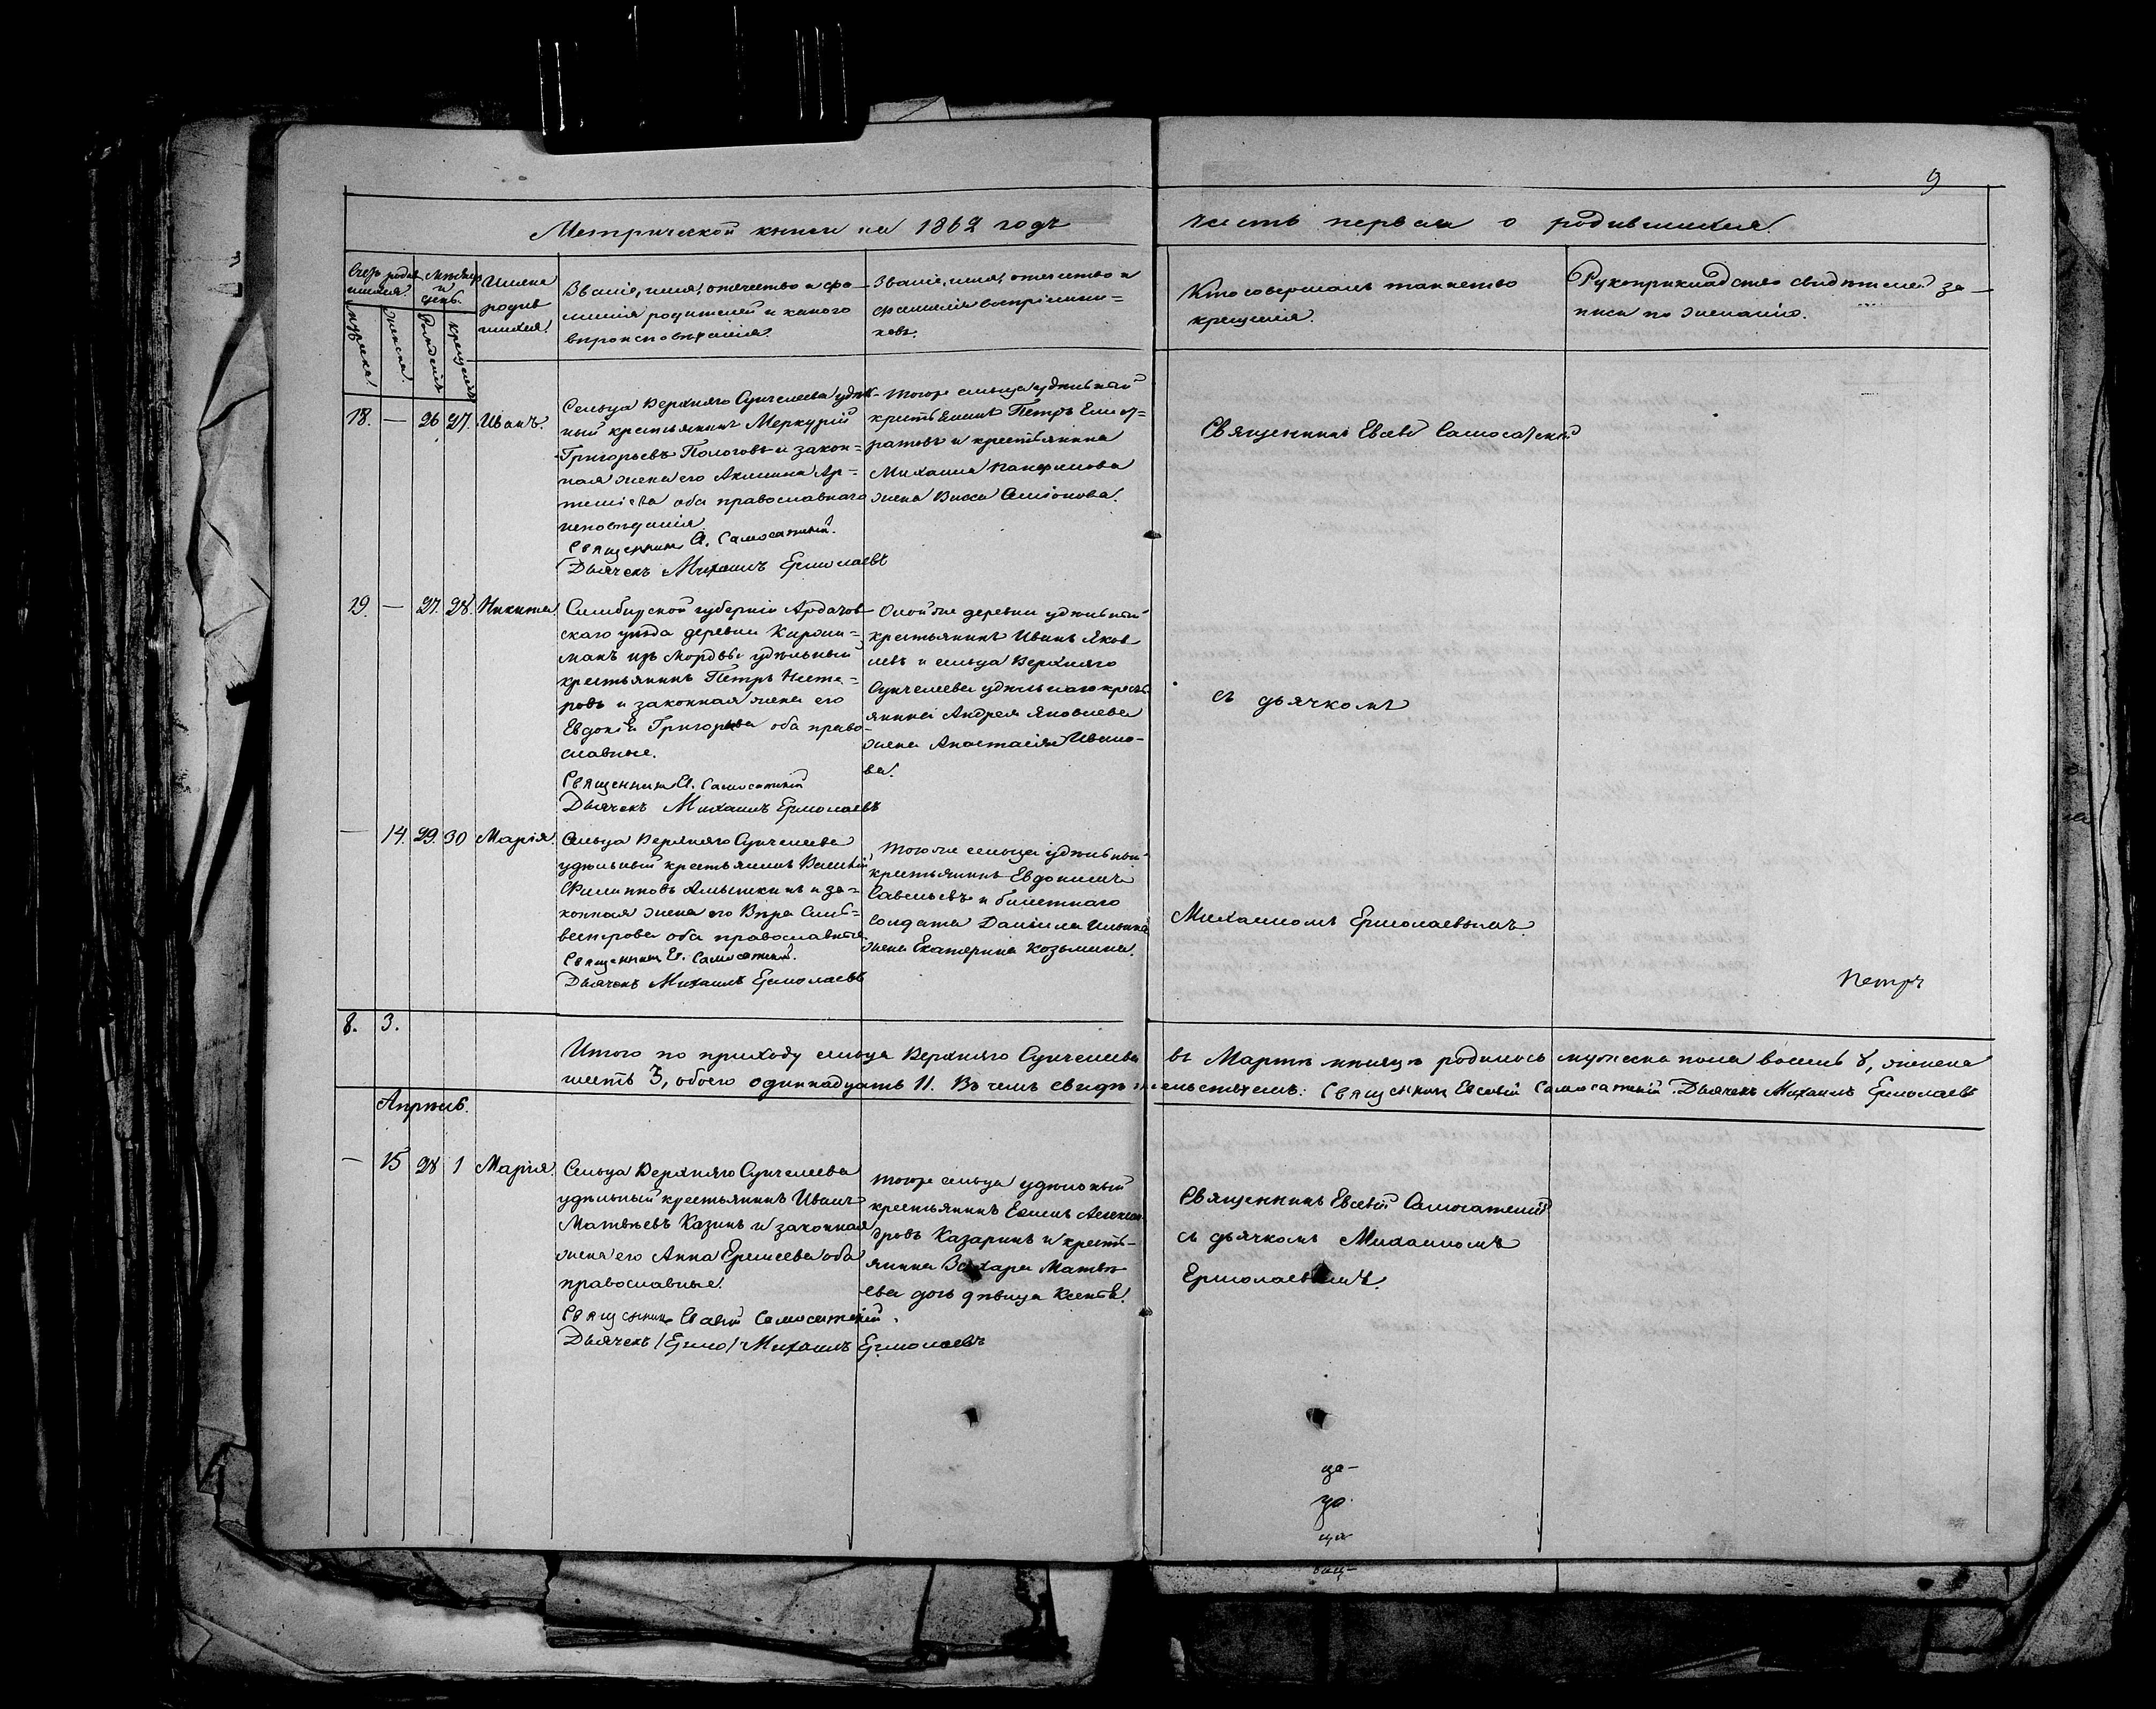 9
Метрической книги на 1862 годъ
часть первая о родившихся.
Счетъ родив
шихся.
Мѣсяцъ
и
день.
Имена
родив
шихся.
мужска.
женска.
Рожденія
крещенія
Званіе, имя, отечество и фа-
милія родителей и какого
вѣроисповѣданія.
Званіе, имя, отечество и
фамилія воспріемни=
ковъ.
Кто совершалъ таинство
крещенія.
Рукоприкладство свидѣтелей за-
писи по желанію.
18. — 26 27. Иванъ.
Сельца Верхняго Сунчелеева удѣль-
ный крестьянинъ Меркурій
Григорьевъ Пологовъ и закон=
ная жена его Акилина Ар=
темьева оба православнаго
исповѣданія.
Священникъ Е. Самосатскій.
Дьячекъ Михаилъ Ермолаевъ
Тогоже сельца удѣльный
крестьянинъ Петръ
ратовъ и крестьянина
Михаила Панфилова
жена Васса Семіонова.
Священникъ Евсевій Самосатскій
19. — 27. 28. Никита.
Симбирской губерніи Ардатов-
скаго уѣзда деревни Киржи=
манъ изъ мордвы удѣльный
крестьянинъ Петръ Несте=
ровъ и законная жена его
Евдокія Григорьева оба право-
славные.
Священникъ Е. Самосатскій
Дьячекъ Михаилъ Ермолаевъ
Оной же деревни удѣльный
крестьянинъ Иванъ Яков-
левъ и сельца Верхняго
Сунчелеева удѣльнаго кресть
янина Андрея Яковлева
жена Анастасія Ивано-
ва.
съ дьячкомъ
— 14. 29. 30 Марія.
Сельца Верхняго Сунчелеева
удѣльный крестьянинъ Василій
Филипповъ Алышкинъ и за=
конная жена его Вѣра Сель=
вестрова оба православные.
Священникъ Е. Самосатскій.
Дьячекъ Михаилъ Ермолаевъ
Того же сельца удѣльный
крестьянинъ Евдокимъ
Савельевъ и билетнаго
солдата Даніила Ильина
жена Екатерина Козьмина.
Михаиломъ Ермолаевымъ.
Петръ
8. 3.
Итого по приходу сельца Верхняго Сунчелеева въ Мартѣ мѣсяцѣ родилось мужеска пола восемь 8, женска
шесть 3, обоего одиннадцать 11. Въ чемъ свидѣтельствуемъ: Священникъ Евсевій Самосатскій. Дьячекъ Михаилъ Ермолаевъ
Апрѣль.
— 15 28 1 Марія.
Сельца Верхняго Сунчелеева
удѣльный крестьянинъ Иванъ
Матвѣевъ Казинъ и законная
жена его Анна Елисеева оба
православные.
Священникъ Евсевій Самосатскій.
Дьячекъ /Ермо/ Михаилъ Ермолаевъ
Тогоже сельца удѣльный
крестьянинъ Александ
дровъ Казаринъ и кресть-
янина Захара Матвѣ
ева дочь дѣвица
Священникъ Евсевій Самосатскій
съ дьячкомъ Михаиломъ
Ермолаевымъ.